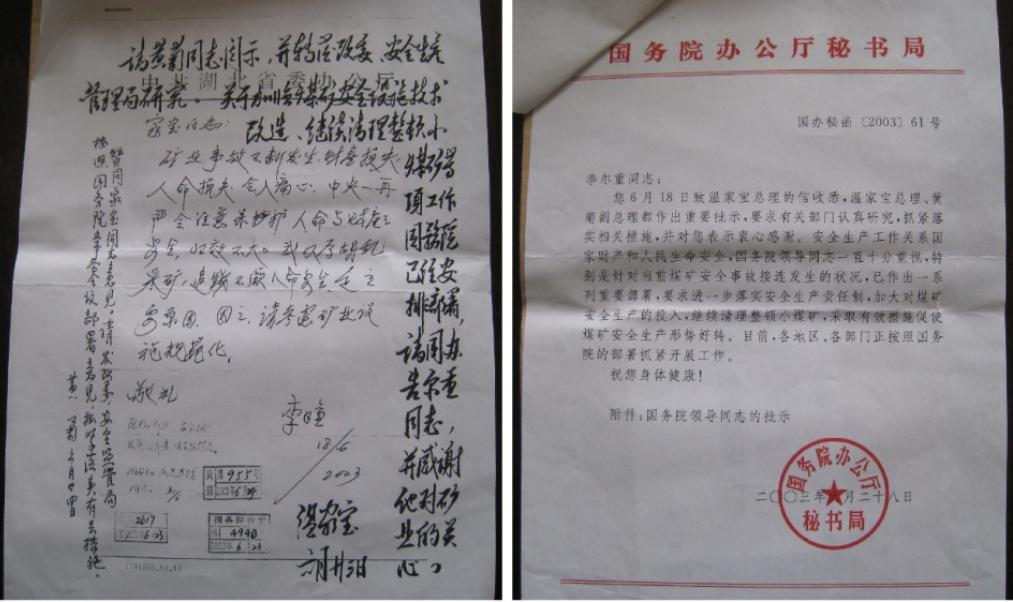 请黄菊同志阅示，并转发改委、安全生产
中共湖北省委办公厅
管理局研究。关于加强煤矿安全设施技术
改造、继续清理整顿小
煤矿等
项工作
国务院
已经安
排部署，
请国办
告尔重
同志，
并感谢
他对矿
业的关
心。
温家宝
六月廿二日
家宝同志：
矿业事故不断发生，财产损失，
人命损失，令人痛心，中央一再
严令注意保护人命与财产之
安全，
敬礼
李尔重
18/6
2003
赞同家宝同志意见，请发改委、安全监管局
按照国务院常务会议部署意见抓紧落实有关措施。
黄菊 六月廿四日
955
2617
4940
国务院办公厅秘书局
国办秘函〔2003〕61号
李尔重同志：
您6月18日致温家宝总理的信收悉，温家宝总理、黄
菊副总理都作出重要批示，要求有关部门认真研究，抓紧落
实相关措施，并对您表示衷心感谢。安全生产工作关系国
家财产和人民生命安全，国务院领导同志一直十分重视，特
别是针对当前煤矿安全事故接连发生的状况，已作出一系
列重要部署，要求进一步落实安全生产责任制，加大对煤矿
安全生产的投入，继续清理整顿小煤矿，采取有效措施促使
煤矿安全生产形势好转。目前，各地区、各部门正按照国务
院的部署抓紧开展工作。
祝您身体健康！
附件：国务院领导同志的批示
二〇〇三年 月二十八日
国务院办公厅
秘书局